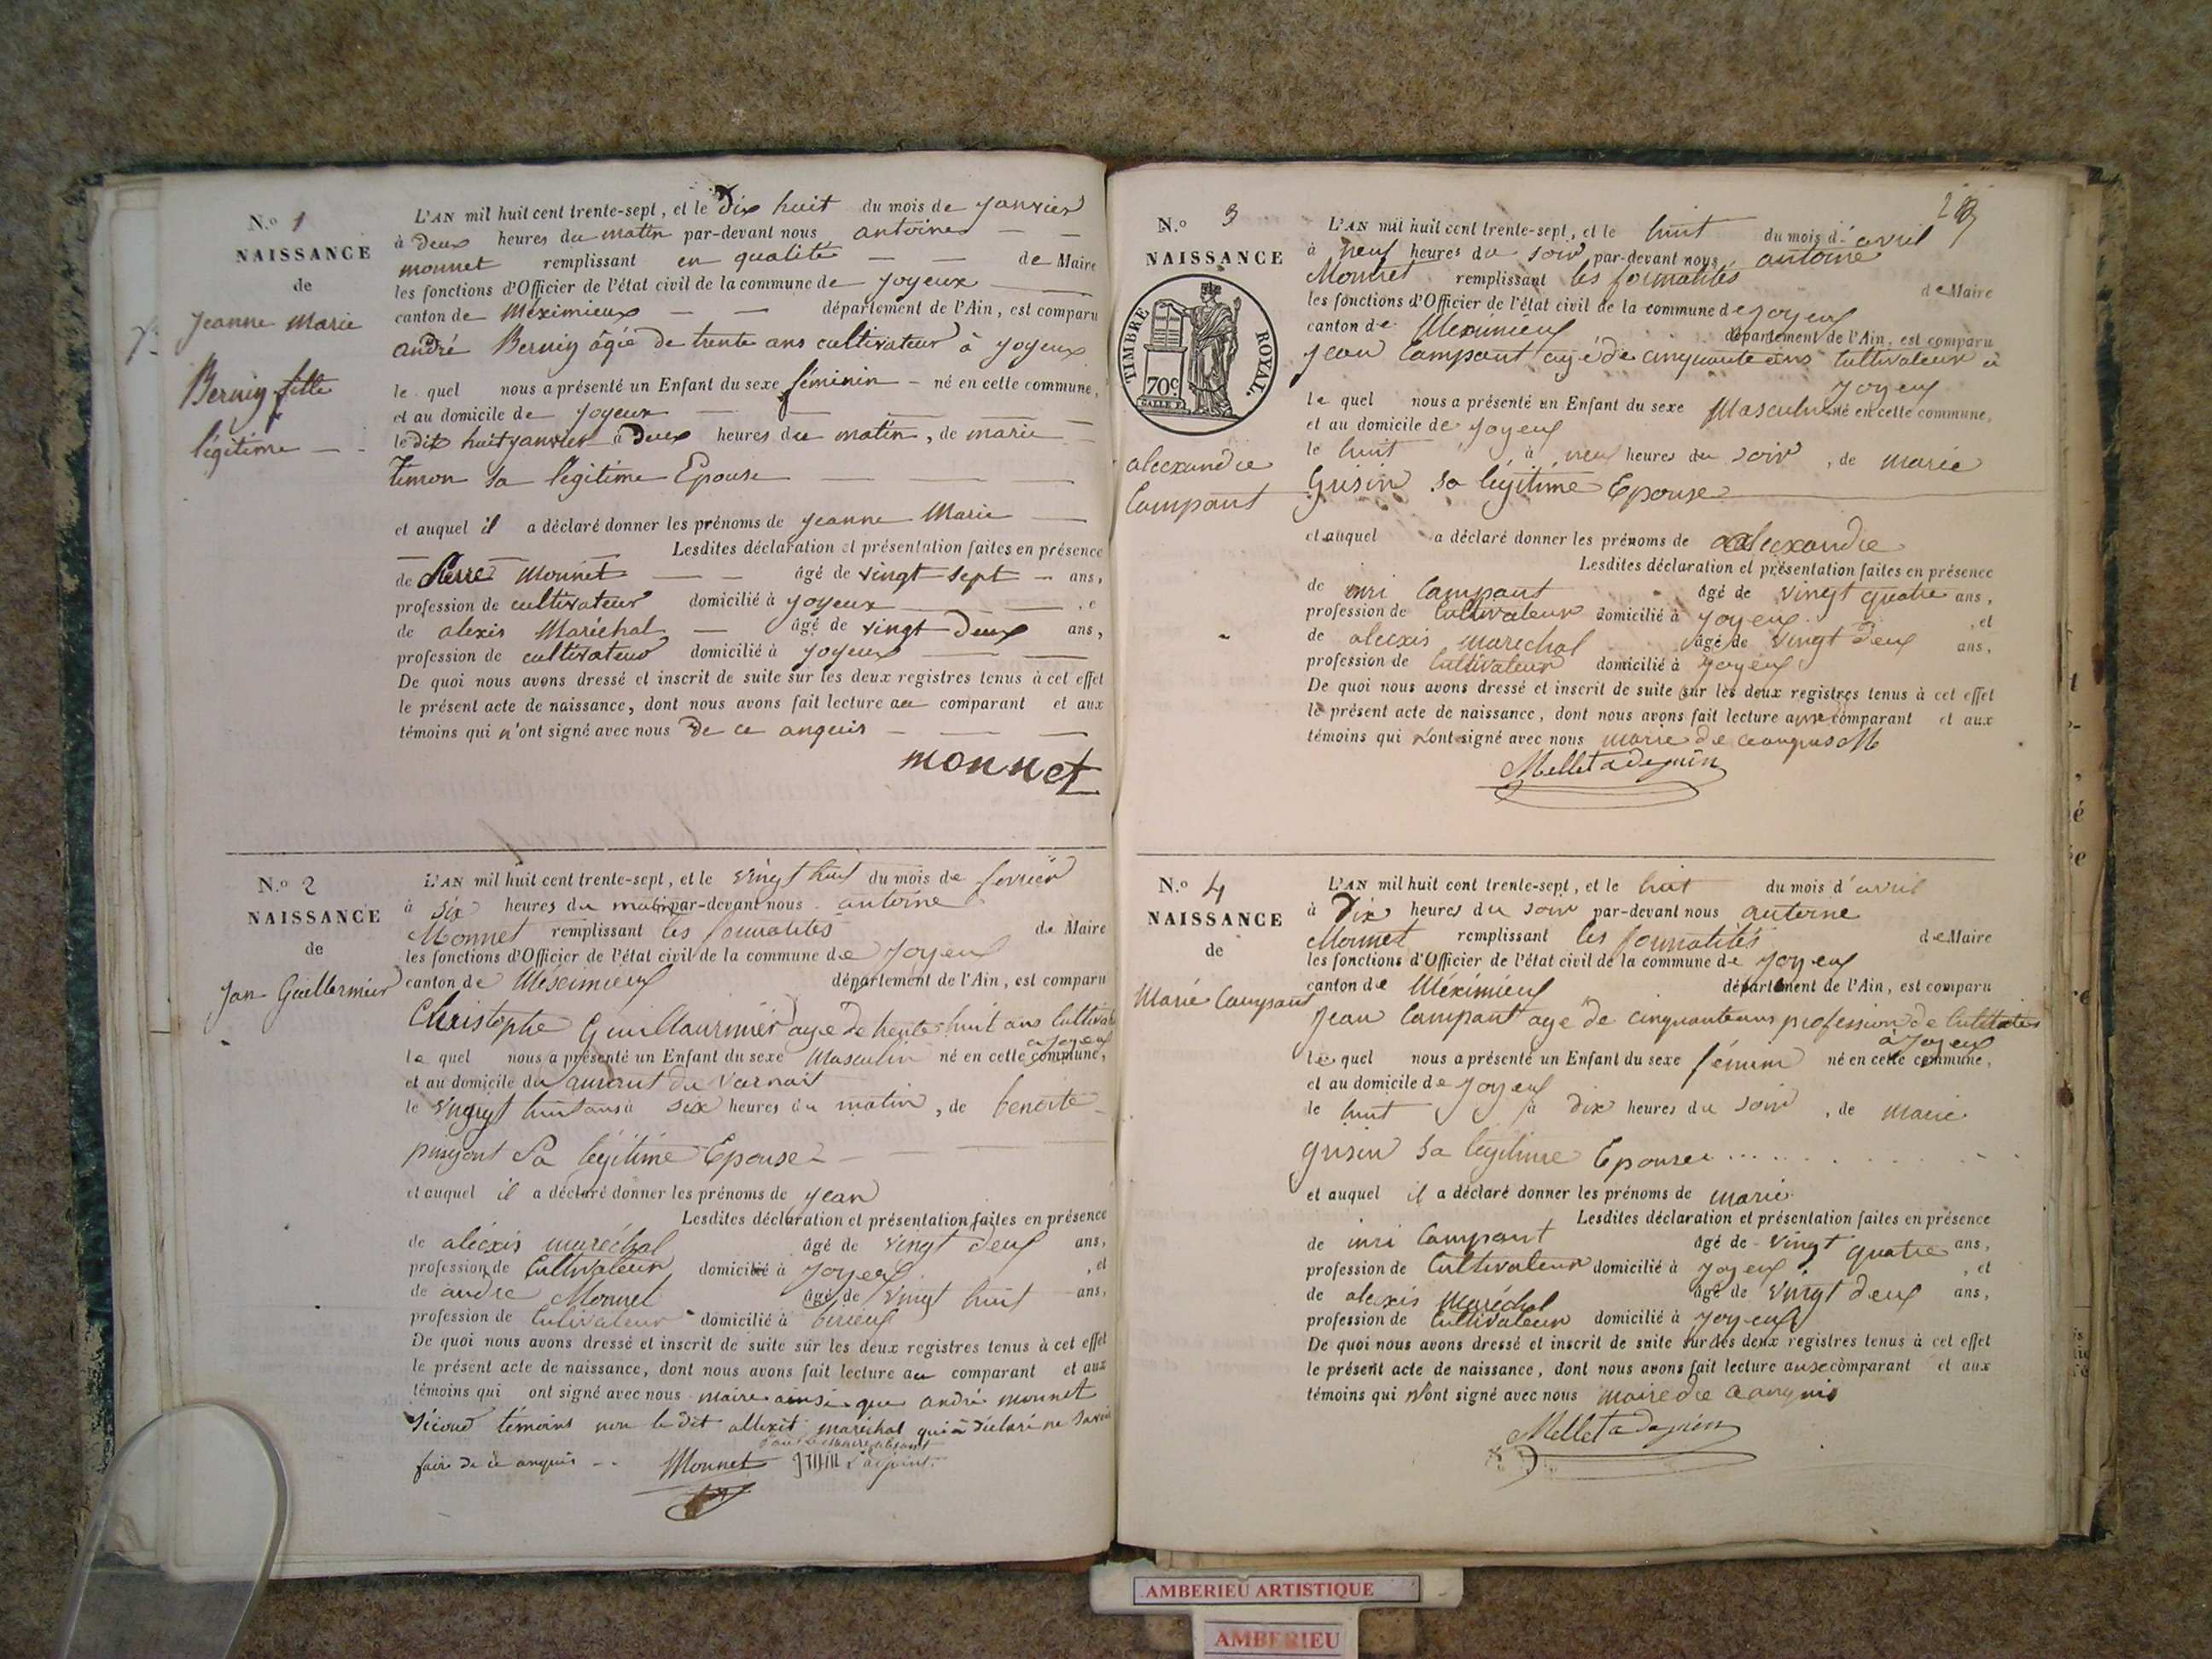 N.o 1
NAISSANCE
de
Jeanne Marie
Berniy fille
légitime
L'AN mil huit cent trente-sept, et le Dix huit du mois de Janvier
à deux heures du matin par-devant nous antoine
monnet remplissant en qualité de Maire
les fonctions d'Officier de l'état civil de la commune de Joyeux
canton de Méximieux département de l'Ain, est comparu
andré Berniy âgé de trente ans cultivateur à Joyeux
le quel nous a présenté un Enfant du sexe féminin né en cette commune,
et au domicile de Joyeux
le dix huit janvier à Deux heures du matin, de marie
Timon sa légitime Epouse
et auquel il a déclaré donner les prénoms de Jeanne Marie
Lesdites déclaration et présentation faites en présence
de Pierre Monnet âgé de vingt sept ans,
profession de cultivateur domicilié à Joyeux , e
de alexis Maréchal âgé de vingt Deux ans,
profession de cultivateur domicilié à Joyeux
De quoi nous avons dressé et inscrit de suite sur les deux registres tenus à cet effet
le présent acte de naissance, dont nous avons fait lecture au comparant et aux
témoins qui n'ont signé avec nous De ce anquis
monnet
N.o 2
NAISSANCE
de
Jan Guillermier
L'AN mil huit cent trente-sept, et le vingt huit du mois de fevrier
à six heures du matin par-devant nous antoine
Monnet remplissant les formalités de Maire
les fonctions d'Officier de l'état civil de la commune de Joyeux
canton de Méximieux département de l'Ain, est comparu
Christophe Guillaurmier age de trente huit ans Cultivat
a Joyeux
le quel nous a présenté un Enfant du sexe Masculin né en cette commune,
et au domicile du
le vingt huit à six heures du matin, de benoite
sa légitime Epouse
et auquel il a déclaré donner les prénoms de jean
Lesdites déclaration et présentation faites en présence
de alécxis maréchal âgé de vingt deux ans,
profession de Cultivateur domicilié à Joyeux , et
de andré Monnet âgé de vingt huit ans,
profession de Cultivateur domicilié à birieux
De quoi nous avons dressé et inscrit de suite sur les deux registres tenus à cet effet
le présent acte de naissance, dont nous avons fait lecture au comparant et aux
témoins qui ont signé avec nous maire ainsi que andré monnet
sécond témoins non le dit allexit maréchal qui à déclaré ne savoir
faire de ce anquis
Monnet
28
N.o 3
NAISSANCE
TIMBRE ROYAL.
70c
alecxandre
Campant
L'AN mil huit cent trente-sept, et le huit du mois d'avril
à neuf heures du soir par-devant nous antoine
Monnet remplissant les formalités de Maire
les fonctions d'Officier de l'état civil de la commune de Joyeux
canton de Meximieux département de l'Ain, est comparu
Jean Campant agé de cinquante ans Cultivateur à
Joyeux
le quel nous a présenté un Enfant du sexe Masculin né en cette commune,
et au domicile de Joyeux
le huit à neuf heures du soir, de marie
Grisin sa légitime Epouse
et auquel a déclaré donner les prénoms de alecxandre
Lesdites déclaration et présentation faites en présence
de inri Campant âgé de vingt quatre ans,
profession de Cultivateur domicilié à Joyeux , et
de alecxis marechal âgé de vingt deux ans,
profession de Cultivateur domicilié à Joyeux
De quoi nous avons dressé et inscrit de suite sur les deux registres tenus à cet effet
le présent acte de naissance, dont nous avons fait lecture comparant et aux
témoins qui n'ont signé avec nous maire de ceanquis
N.o 4
NAISSANCE
de
Marie Campant
L'AN mil huit cent trente-sept, et le huit du mois d'avril
à Dix heures du soir par-devant nous antoine
Monnet remplissant les formalités de Maire
les fonctions d'Officier de l'état civil de la commune de Joyeux
canton de Méximieux département de l'Ain, est comparu
Jean Campant age de cinquante ans profession de Cultivateur
a Joyeux
le quel nous a présenté un Enfant du sexe féminin né en cette commune,
et au domicile de Joyeux
le huit à dix heures du soir, de marie
grisin sa légitime Epouse
et auquel il a déclaré donner les prénoms de marie
Lesdites déclaration et présentation faites en présence
de inri Campant âgé de vingt quatre ans,
profession de Cultivateur domicilié à Joyeux , et
de alecxis maréchal âgé de vingt deux ans,
profession de Cultivateur domicilié à Joyeux
De quoi nous avons dressé et inscrit de suite sur les deux registres tenus à cet effet
le présent acte de naissance, dont nous avons fait lecture comparant et aux
témoins qui n'ont signé avec nous maire de ceanquis
AMBERIEU ARTISTIQUE
AMBERIEU